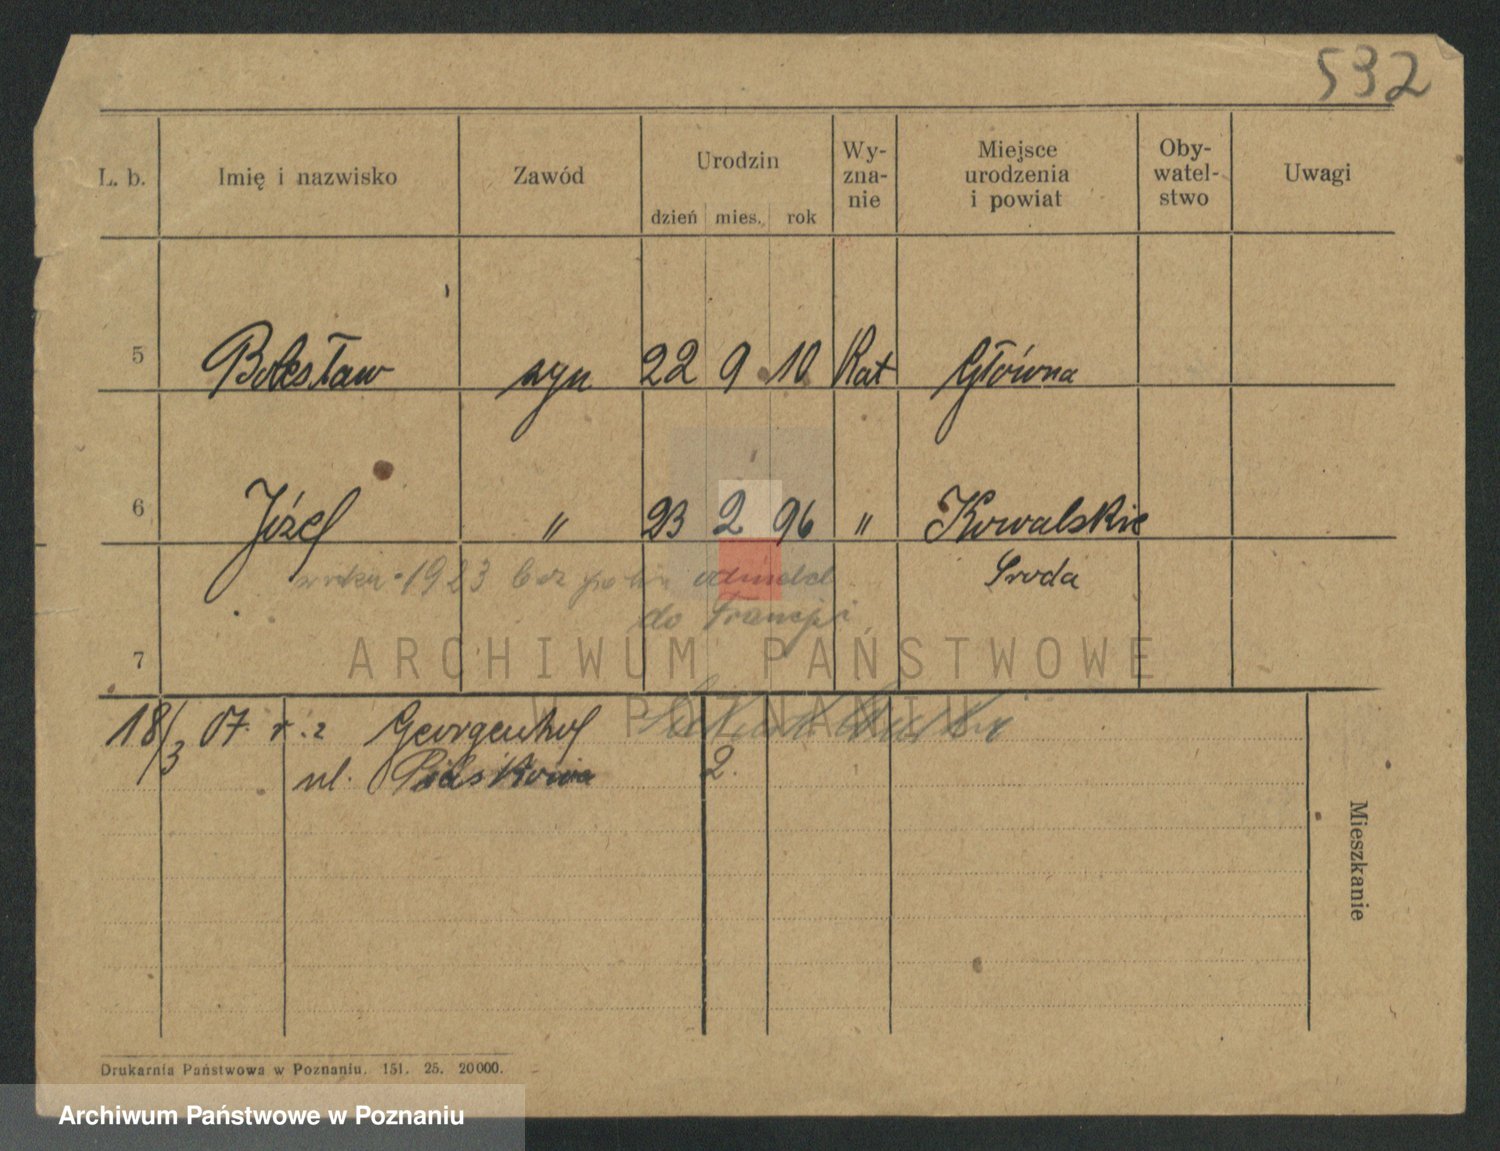 532
L. b. Imię i nazwisko Zawód Urodzin dzień mies. rok Wy-zna-nie Miejsce urodzenia i powiat Oby-watel-stwo Uwagi
5 Bolesław syn 22 9 10 Kat Główna
6 Józef " 23 2 96 " Kowalskie
Środa
w roku 1923 bez
do Francji
7
ARCHIWUM PAŃSTWOWE
W POZNANIU
18/3 07. r. z Georgenhof
ul. Piaskowa 2.
Mieszkanie
Drukarnia Państwowa w Poznaniu. 151. 25. 20000.
Archiwum Państwowe w Poznaniu